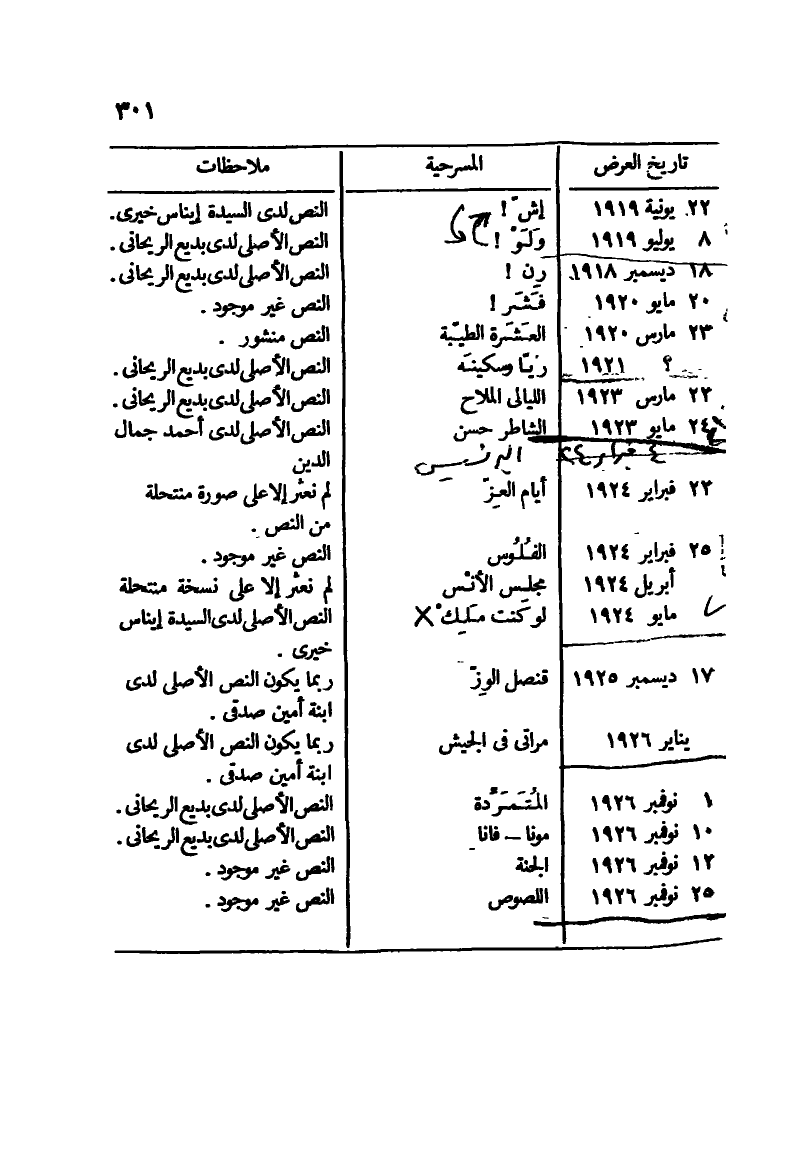 ٣٠١
تاريخ العرض المسرحية ملاحظات
٢٢ يونية ١٩١٩ إش ! النص لدى السيدة إيناس خيرى .
٨ يوليو ١٩١٩ ولَوْ ! النص الأصلى لدى بديع الريحانى .
١٨ ديسمبر ١٩١٨ رن ! النص الأصلى لدى بديع الريحانى .
٢٠ مايو ١٩٢٠ فَشَر ! النص غير موجود .
٢٣ مارس ١٩٢٠ العَشَرة الطيّبة النص منشور .
؟ ١٩٢١ ريّا وسكينة النص الأصلى لدى بديع الريحانى .
٢٣ مارس ١٩٢٣ الليالى الملاح النص الأصلى لدى بديع الريحانى .
٢٤ مايو ١٩٢٣ الشاطر حسن النص الأصلى لدى أحمد جمال
٤ فبراير ٢٤ البرنسيس الدين
٢٣ فبراير ١٩٢٤ أيام العزّ لم نعثر إلا على صورة منتحلة
من النص .
٢٥ فبراير ١٩٢٤ الفُلُوس النص غير موجود .
أبريل ١٩٢٤ مجلس الأنس لم نعثر إلا على نسخة منتحلة
مايو ١٩٢٤ لو كنت ملِك X النص الأصلى لدى السيدة إيناس
خيرى .
١٧ ديسمبر ١٩٢٥ قنصل الوزّ ربما يكون النص الأصلى لدى
ابنة أمين صدقى .
يناير ١٩٢٦ مراتى فى الجيش ربما يكون النص الأصلى لدى
ابنة أمين صدقى .
١ نوفمبر ١٩٢٦ المُتَمَرِّدة النص الأصلى لدى بديع الريحانى .
١٠ نوفمبر ١٩٢٦ مونا – فانا النص الأصلى لدى بديع الريحانى .
١٢ نوفمبر ١٩٢٦ الجنة النص غير موجود .
٢٥ نوفمبر ١٩٢٦ اللصوص النص غير موجود .